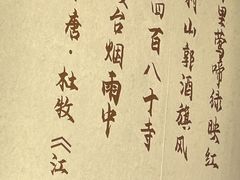 里莺啼绿映红
山郭酒旗风
四百八十寺
台烟雨中
唐·杜牧《江